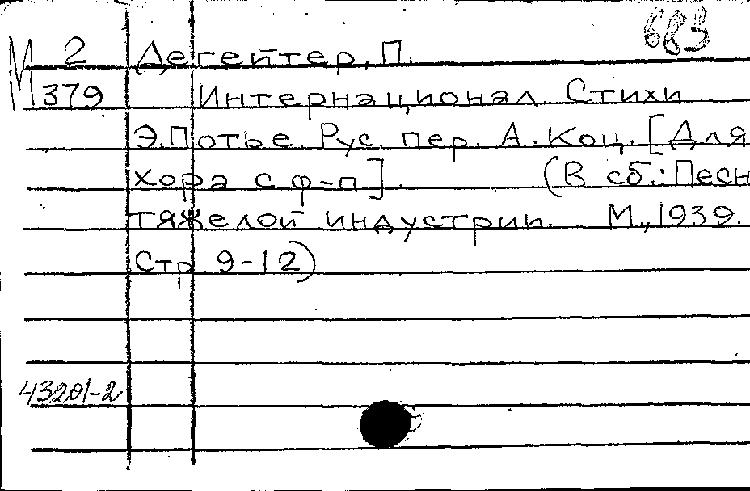 683
М 2 Дегейтер, П.
379 Интернационал. Стихи
Э.Потье. Рус. пер. А. Коц. [Для
хора с ф-п]. (В сб.: Песн
тяжелой индустрии. М., 1939.
Стр. 9-12)
43201-2